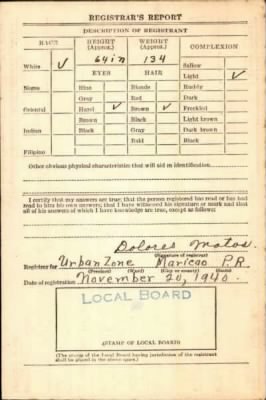 REGISTRAR'S REPORT
DESCRIPTION OF REGISTRANT
RACE HEIGHT (Approx.) WEIGHT (Approx.) COMPLEXION
White ✓ 64in 134 Sallow
EYES HAIR Light ✓
Negro Blue Blonde Ruddy
Gray Red Dark
Oriental Hazel ✓ Brown ✓ Freckled
Brown Black Light brown
Indian Black Gray Dark brown
Bald Black
Filipino
Other obvious physical characteristics that will aid in identification
I certify that my answers are true; that the person registered has read or has had
read to him his own answers; that I have witnessed his signature or mark and that
all of his answers of which I have knowledge are true, except as follows:
Dolores Matos
(Signature of registrar)
Registrar for Urban Zone Maricao P.R.
(Precinct) (Ward) (City or county) (State)
Date of registration November 20, 1940.
LOCAL BOARD
(STAMP OF LOCAL BOARD)
(The stamp of the Local Board having jurisdiction of the registrant
shall be placed in the above space.)